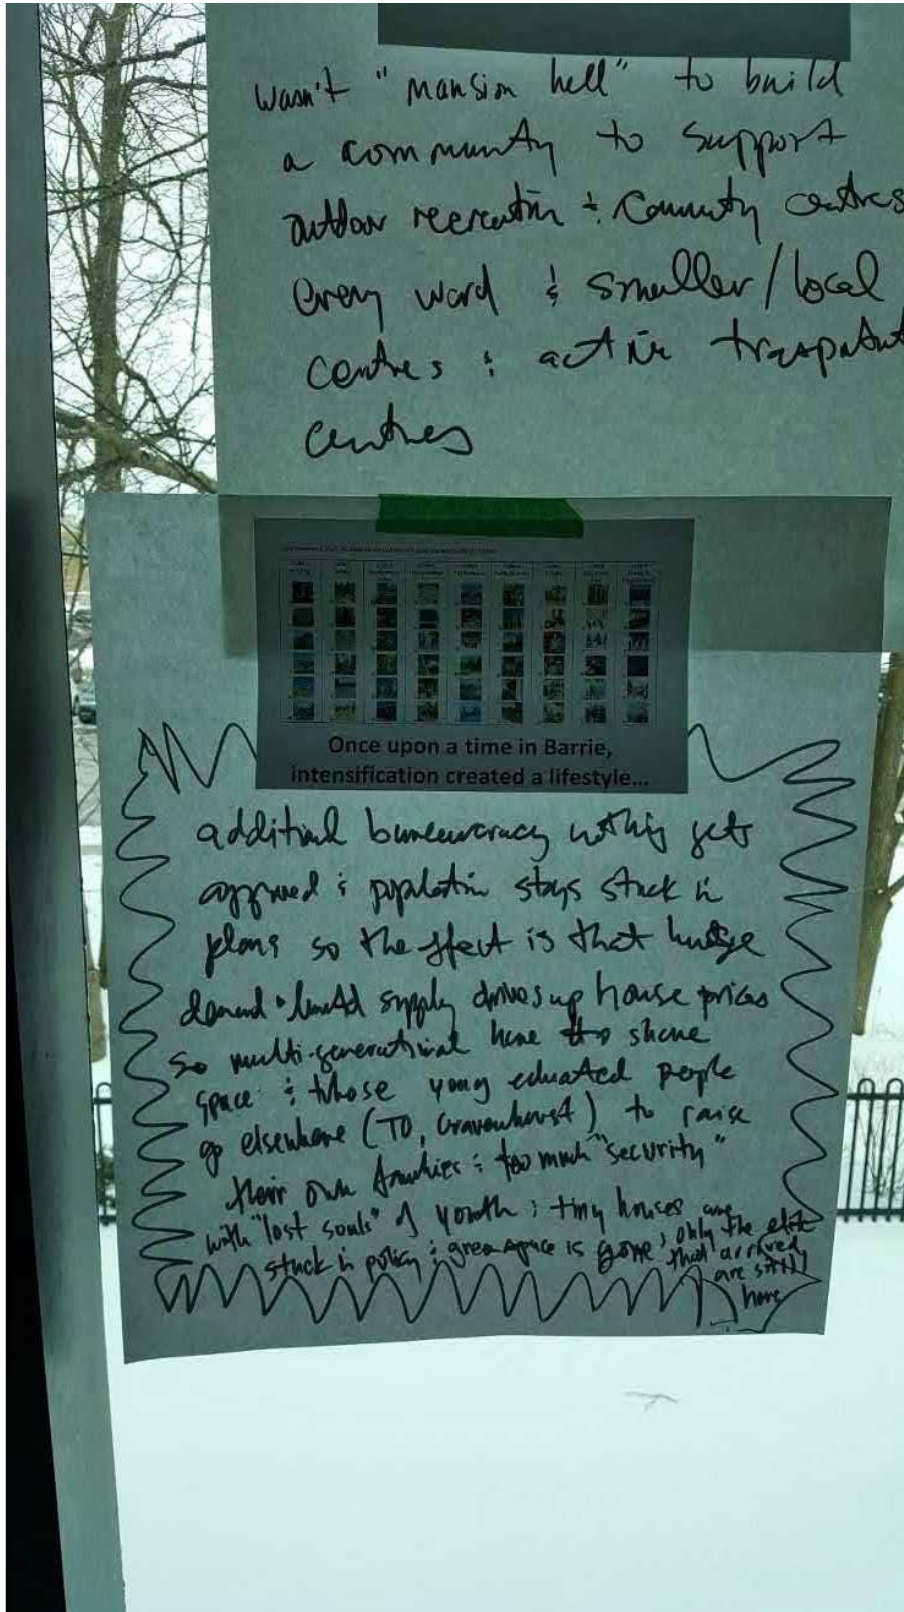 wasn't "mansion hell" to build
a community to support
outdoor recreation & community centres
every ward & smaller/local
centres & active
centres
Once upon a time in Barrie,
intensification created a lifestyle...
additional bureaucracy nothing gets
approved & population stays stuck in
plans so the effect is that
demand + limited supply drives up house prices
so multi-generational have to share
space & those young educated people
go elsewhere (TO, Gravenhurst) to raise
their own families & too much "security"
with "lost souls" of youth & tiny houses are
stuck in policy & greenspace is gone & only the elite
that arrived
are still
here